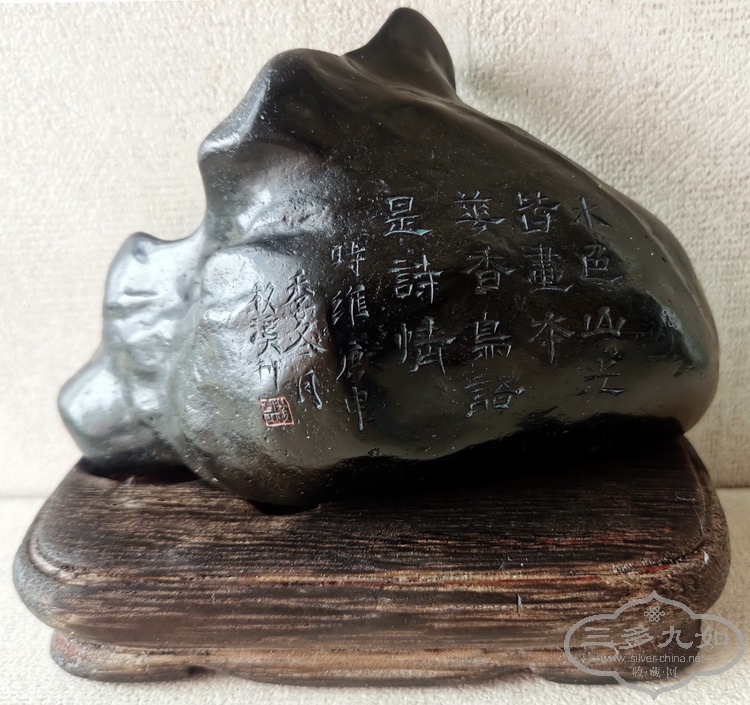 水色山光
皆畫本
華香鳥語
是詩情
時維庚申
季冬月
秋溪刊
三多九如
www.silver-china.net
收藏网